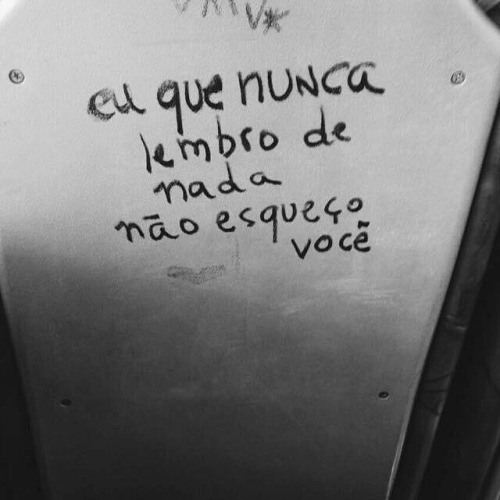 eu que nunca
lembro de
nada
não esqueço
você